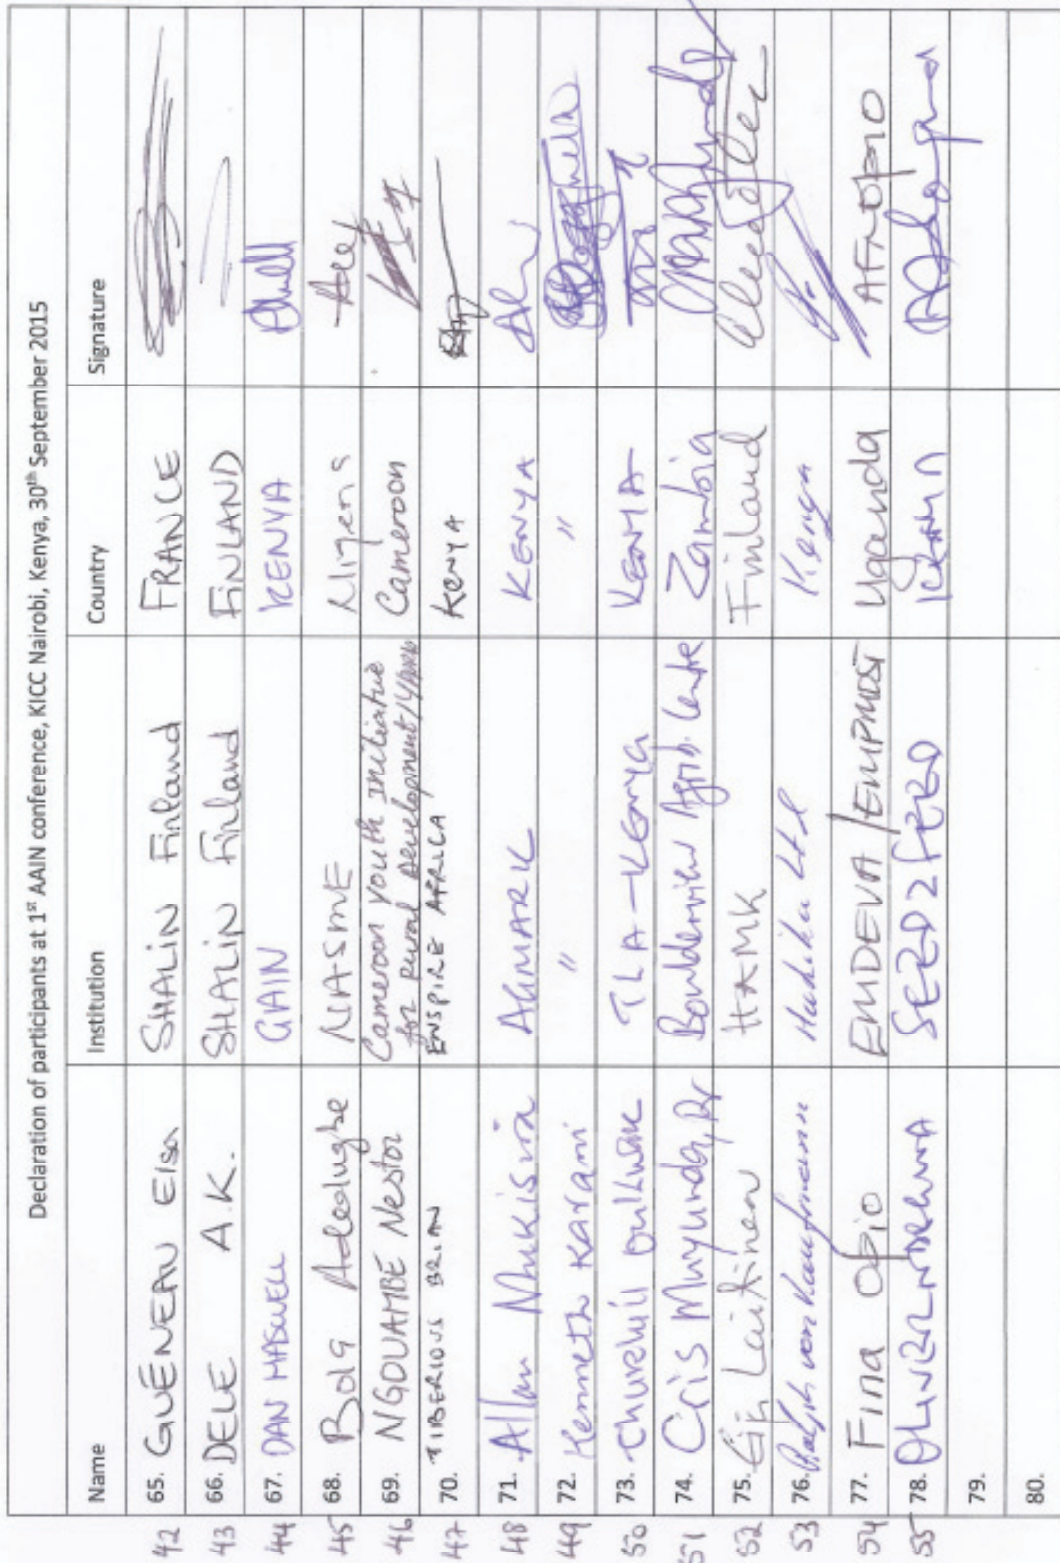 Declaration of participants at 1st AAIN conference, KICC Nairobi, Kenya, 30th September 2015
Name Institution Country Signature
42 65. GUENEAU Elsa SHALIN Finland FRANCE
43 66. DELE A.K. SHALIN Finland FINLAND
44 67. DAN MASWELL GAIN KENYA
45 68. Bola Adedugbe NIASME Nigeria
46 69. NGOUAMBE Nestor Cameroon youth initiative for rural development/ Cameroon
47 70. TIBERIOUS BRIAN ENSPIRE AFRICA KENYA
48 71. Allan Mukisira AGMARK KENYA
49 72. Kenneth Karani " "
50 73. Churchil TLA-KENYA KENYA
51 74. Cris Muyunda, Dr Boulderview Agrib. Centre Zambia
52 75. Laitinen HAMK Finland
53 76. Ralph von Kaufmann Ltd Kenya
54 77. Fina Opio ENDEVA / Uganda AFNOpio
55 78. SEED2FEED
79.
80.